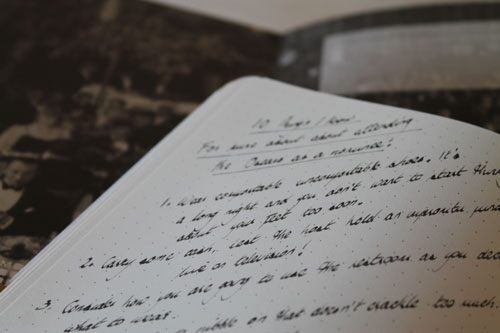 10 things I know
For sure about about attending
the Oscars as a nominee!
1. Wear comfortable uncomfortable shoes. It's
a long night and you don't want to start thinking
about your feet too soon.
2. Carry some cash, lest the host hold an impromptu
live on television!
3. Consider how you are going to use the restroom as you decide
what to wear.
nibble on that doesn't crackle too much